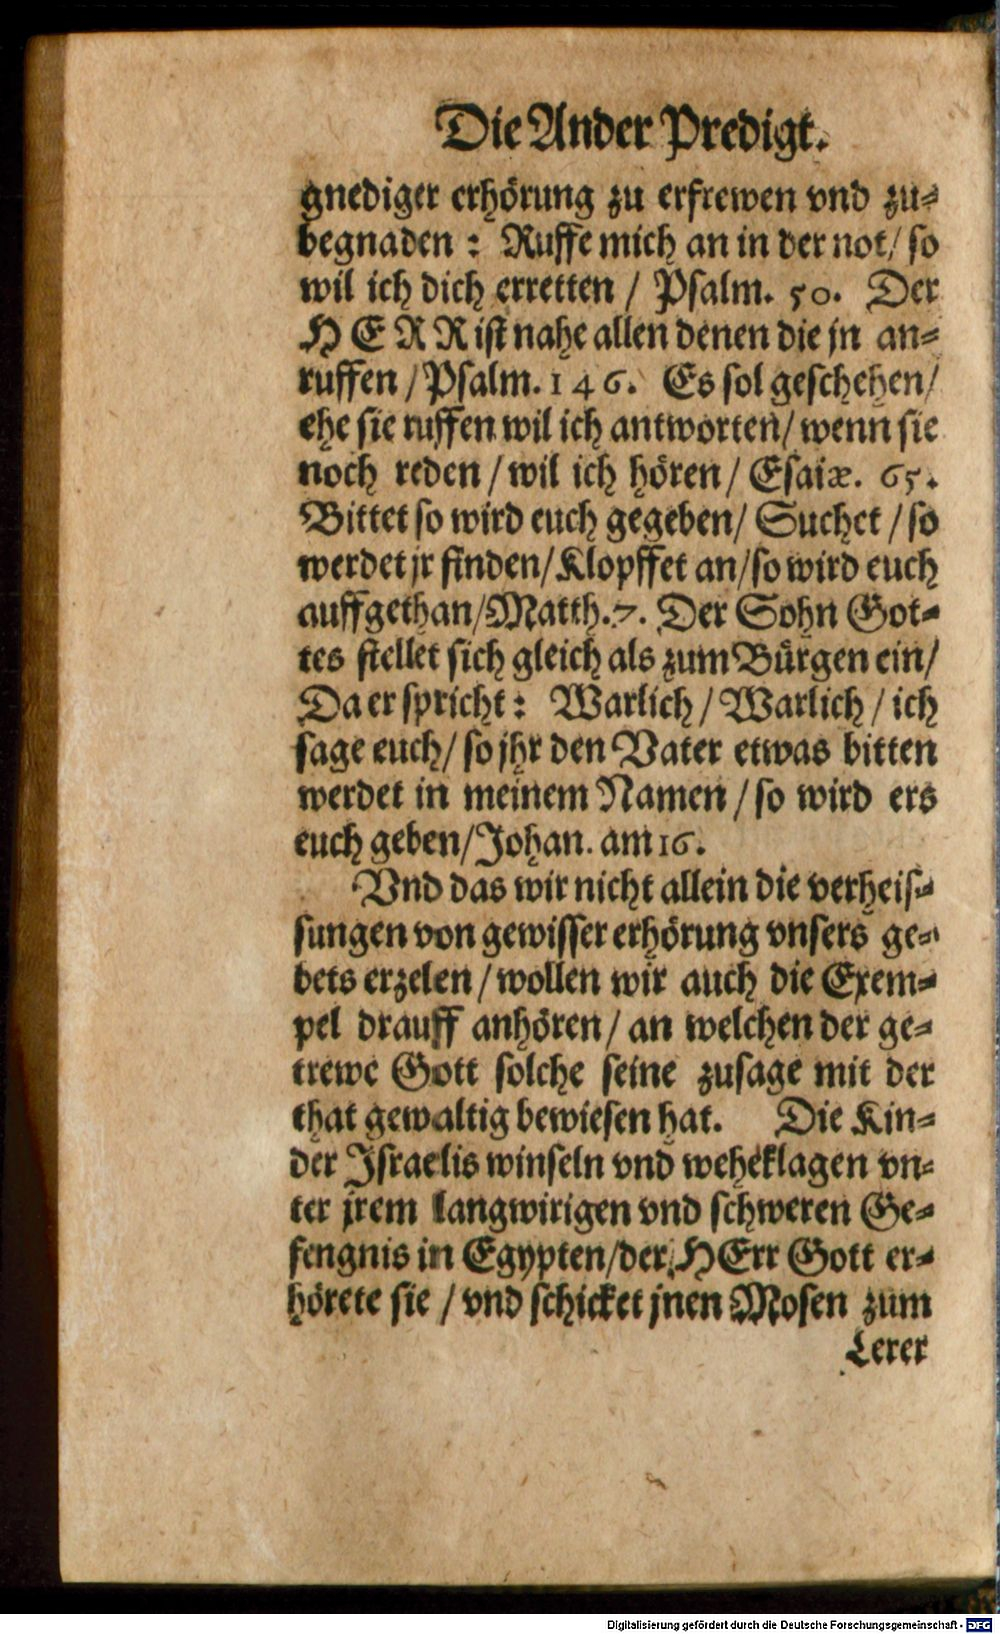 Die Ander Predigt.
gnediger erhörung zu erfrewen vnd zu⸗
begnaden : Ruffe mich an in der not/ so
wil ich dich erretten / Psalm. 50. Der
HERR ist nahe allen denen die jn an⸗
ruffen / Psalm. 146. Es sol geschehen/
ehe sie ruffen wil ich antworten/ wenn sie
noch reden / wil ich hören / Esaiæ. 65.
Bittet so wird euch gegeben/ Suchet / so
werdet jr finden/ Klopffet an/ so wird euch
auffgethan/ Matth. 7. Der Sohn Got⸗
tes stellet sich gleich als zum Bürgen ein/
Da er spricht : Warlich / Warlich / ich
sage euch/ so jhr den Vater etwas bitten
werdet in meinem Namen / so wird ers
euch geben/ Johan. am 16.
Vnd das wir nicht allein die verheis⸗
sungen von gewisser erhörung vnsers ge⸗
bets erzelen / wollen wir auch die Exem⸗
pel drauff anhören / an welchen der ge⸗
trewe Gott solche seine zusage mit der
that gewaltig bewiesen hat. Die Kin⸗
der Israelis winseln vnd weheklagen vn⸗
ter jrem langwirigen vnd schweren Ge⸗
fengnis in Egypten/ der HErr Gott er⸗
hörete sie / vnd schicket jnen Mosen zum
Lerer
Digitalisierung gefördert durch die Deutsche Forschungsgemeinschaft - DFG